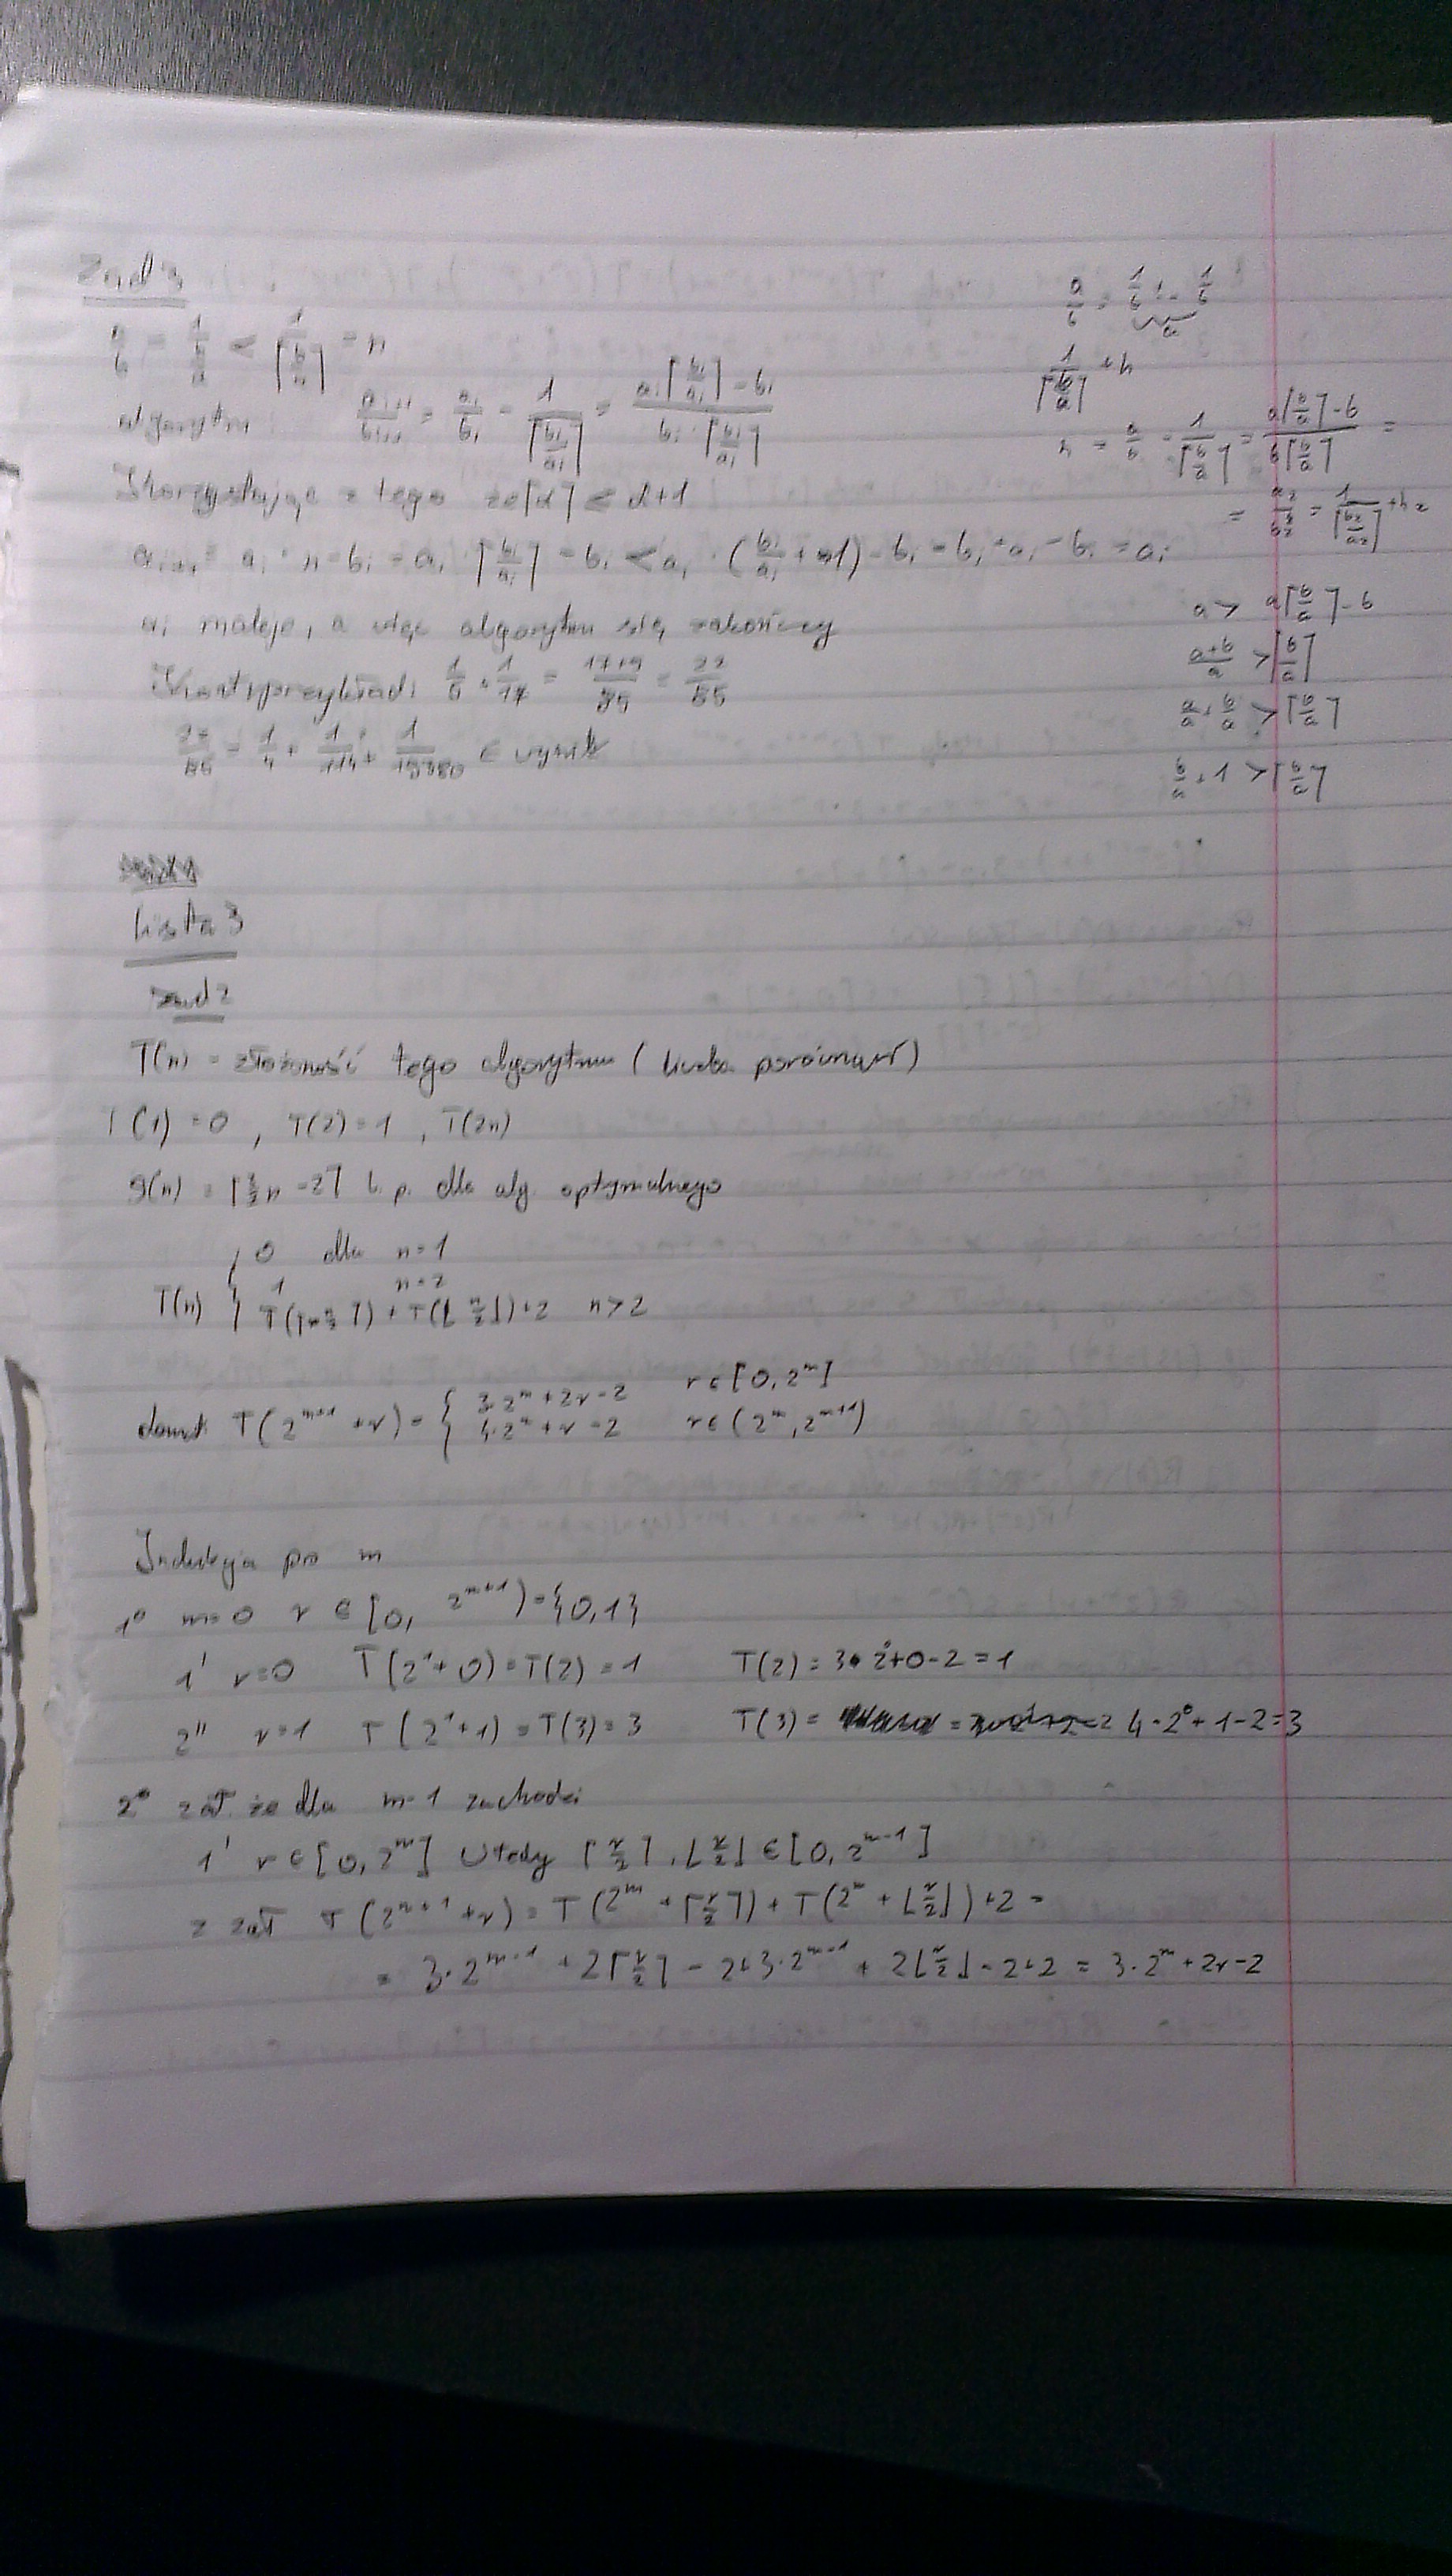 Zad 3
a/b = 1/(b/a) < 1/⌈b/a⌉ = n
algorytm: a_{i+1}/b_{i+1} = a_i/b_i - 1/⌈b_i/a_i⌉ = (a_i⌈b_i/a_i⌉ - b_i)/(b_i · ⌈b_i/a_i⌉)
Skorzystając z tego że ⌈d⌉ < d+1
a_{i+1} = a_i · n - b_i = a_i ⌈b_i/a_i⌉ - b_i < a_i · (b_i/a_i + 1) - b_i = b_i + a_i - b_i = a_i
a_i maleje, a więc algorytm się zakończy
Kontrprzykład: 1/5 + 1/17 = (17+5)/85 = 22/85
22/85 = 1/4 + 1/114 + 1/19380 ← wynik
a/b = 1/b + … 1/b
a
1/⌈b/a⌉ + h
h = a/b - 1/⌈b/a⌉ = (a⌈b/a⌉ - b)/(b⌈b/a⌉) =
= a_2/b_2 = 1/⌈b_2/a_2⌉ + h_2
a > a⌈b/a⌉ - b
(a+b)/a > ⌈b/a⌉
a/a + b/a > ⌈b/a⌉
b/a + 1 > ⌈b/a⌉
Lista 3
zad 2
T(n) = złożoność tego algorytmu (liczba porównań)
T(1) = 0, T(2) = 1, T(2n)
g(n) = ⌈3/2 n - 2⌉ l. p. dla alg. optymalnego
T(n) { 0 dla n=1
1 n=2
T(⌈n/2⌉) + T(⌊n/2⌋) + 2 n>2
T(2^{m+1} + r) = { 3·2^m + 2r - 2 r ∈ [0, 2^m]
4·2^m + r - 2 r ∈ (2^m, 2^{m+1})
Indukcja po m
1° m=0 r ∈ [0, 2^{m+1}) = {0,1}
1' r=0 T(2^1 + 0) = T(2) = 1 T(2) = 3·2^0 + 0 - 2 = 1
2'' r=1 T(2^1 + 1) = T(3) = 3 T(3) = 4·2^0 + 1 - 2 = 3
2° zał. że dla m-1 zachodzi
1' r ∈ [0, 2^m] Wtedy ⌈r/2⌉, ⌊r/2⌋ ∈ [0, 2^{m-1}]
z zał T(2^{m+1} + r) = T(2^m + ⌈r/2⌉) + T(2^m + ⌊r/2⌋) + 2 =
= 3·2^{m-1} + 2⌈r/2⌉ - 2 + 3·2^{m-1} + 2⌊r/2⌋ - 2 + 2 = 3·2^m + 2r - 2